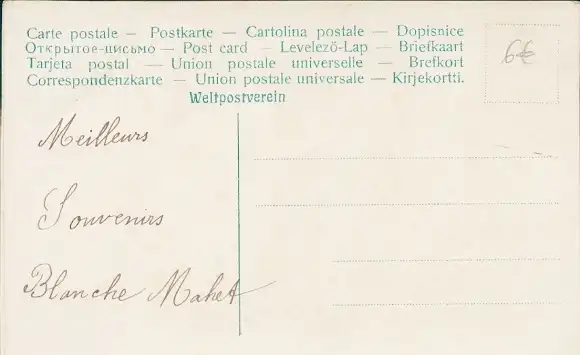 Carte postale — Postkarte — Cartolina postale — Dopisnice
Открытое-письмо — Post card — Levelező-Lap — Briefkaart
Tarjeta postal — Union postale universelle — Brefkort
Correspondenzkarte — Union postale universale — Kirjekortti.
Weltpostverein
6€
Meilleurs
Souvenirs
Blanche Mahet